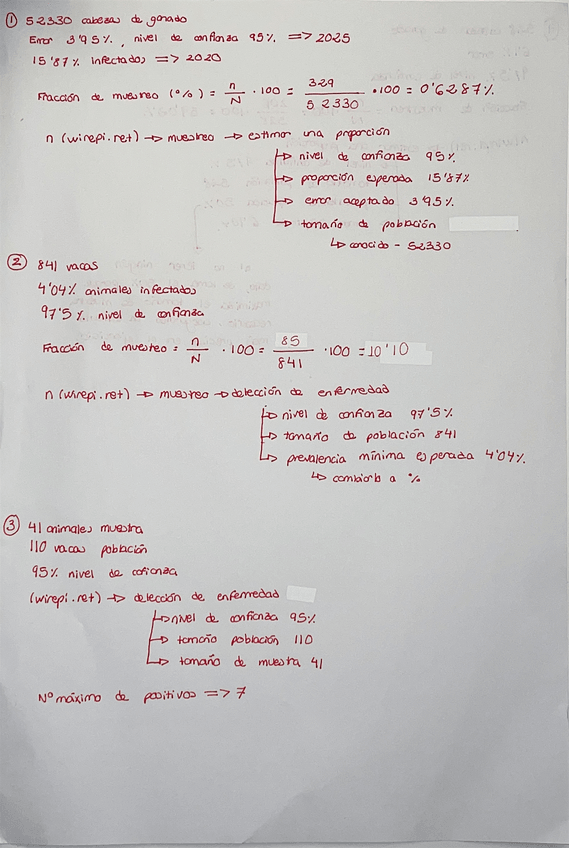 ① 52330 cabezas de ganado
Error 3'95%, nivel de confianza 95% => 2025
15'87% infectados => 2020
Fracción de muestreo (%) = n/N · 100 = 329/52330 · 100 = 0'6287%
n (winepi.net) → muestreo → estimar una proporción
↳ nivel de confianza 95%
↳ proporción esperada 15'87%
↳ error aceptado 3'95%
↳ tamaño de población
↳ conocido - 52330
② 841 vacas
4'04% animales infectados
97'5% nivel de confianza
Fracción de muestreo = n/N · 100 = 85/841 · 100 = 10'10
n (winepi.net) → muestreo → detección de enfermedad
↳ nivel de confianza 97'5%
↳ tamaño de población 841
↳ prevalencia mínima esperada 4'04%
↳ cambiarlo a %
③ 41 animales muestra
110 vacas población
95% nivel de confianza
(winepi.net) → detección de enfermedad
↳ nivel de confianza 95%
↳ tamaño población 110
↳ tamaño de muestra 41
Nº máximo de positivos => 7